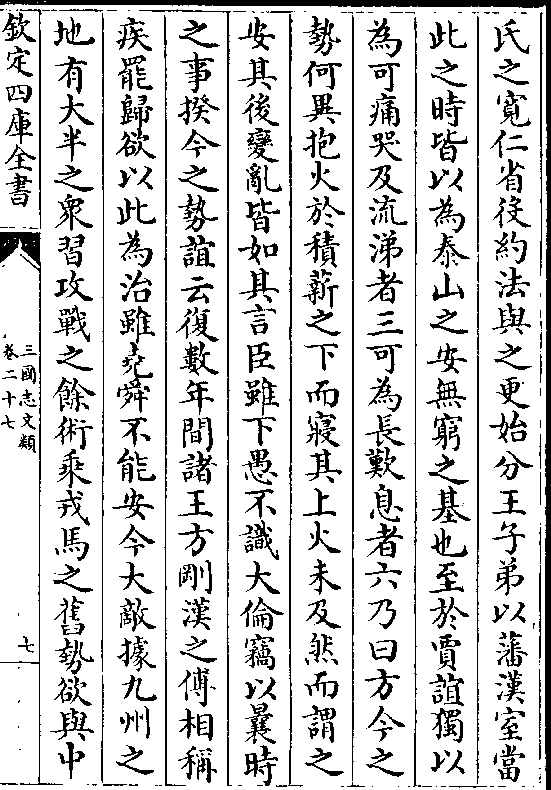 氏之寛仁省役約法與之更始分王子弟以藩漢室當
此之時皆以為泰山之安無窮之基也至於賈誼獨以
為可痛哭及流涕者三可為長歎息者六乃曰方今之
勢何異抱火於積薪之下而寢其上火未及然而謂之
安其後變亂皆如其言臣雖下愚不識大倫竊以曩時
之事揆今之勢誼云復數年間諸王方剛漢之傅相稱
疾罷歸欲以此為治雖堯舜不能安今大敵據九州之
地有大半之衆習攻戰之餘術乘戎馬之舊勢欲與中
欽定四庫全書
三國志文類
卷二十七
七